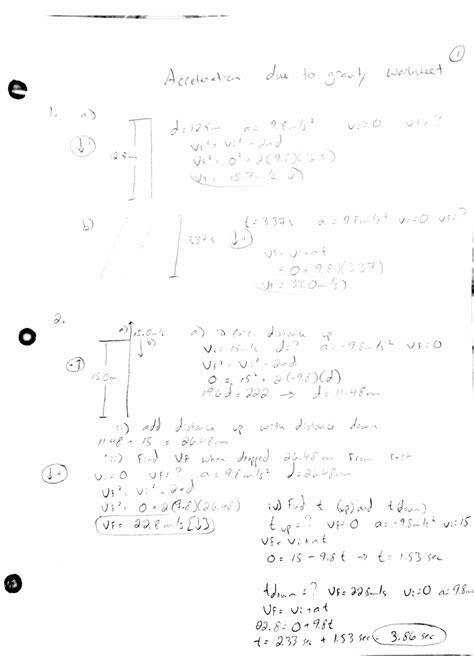 1
Acceleration due to gravity worksheet
1. a)
↓+
12.5m
d=12.5m a=9.8m/s² Vi=0 Vf=?
Vf²=Vi²+2ad
Vf²=0²+2(9.8)(12.5)
Vf=15.7m/s ↓
b)
3.37s
↓+
t=3.37s a=9.8m/s² Vi=0 Vf=?
Vf=Vi+at
=0+9.8(3.37)
Vf=33.0m/s
2.
a) 15.0m/s
b)
↑
15.0m
a) i) distance up
Vi=15m/s d=? a=-9.8m/s² Vf=0
Vf²=Vi²+2ad
0=15²+2(-9.8)(d)
19.6d=222 → d=11.48m
ii) add distance up with distance down
11.48+15=26.48m
iii) Find Vf when dropped 26.48m from rest
↓+
Vi=0 Vf=? a=9.8m/s² d=26.48m
Vf²=Vi²+2ad
Vf²=0+2(9.8)(26.48)
Vf=22.8m/s[↓]
iv) Find t(up) and t(down)
t up=? Vf=0 a=-9.8m/s² Vi=15
Vf=Vi+at
0=15-9.8t → t=1.53 sec
t down=? Vf=22.8m/s Vi=0 a=9.8m
Vf=Vi+at
22.8=0+9.8t
t=2.33 sec + 1.53 sec = 3.86 sec